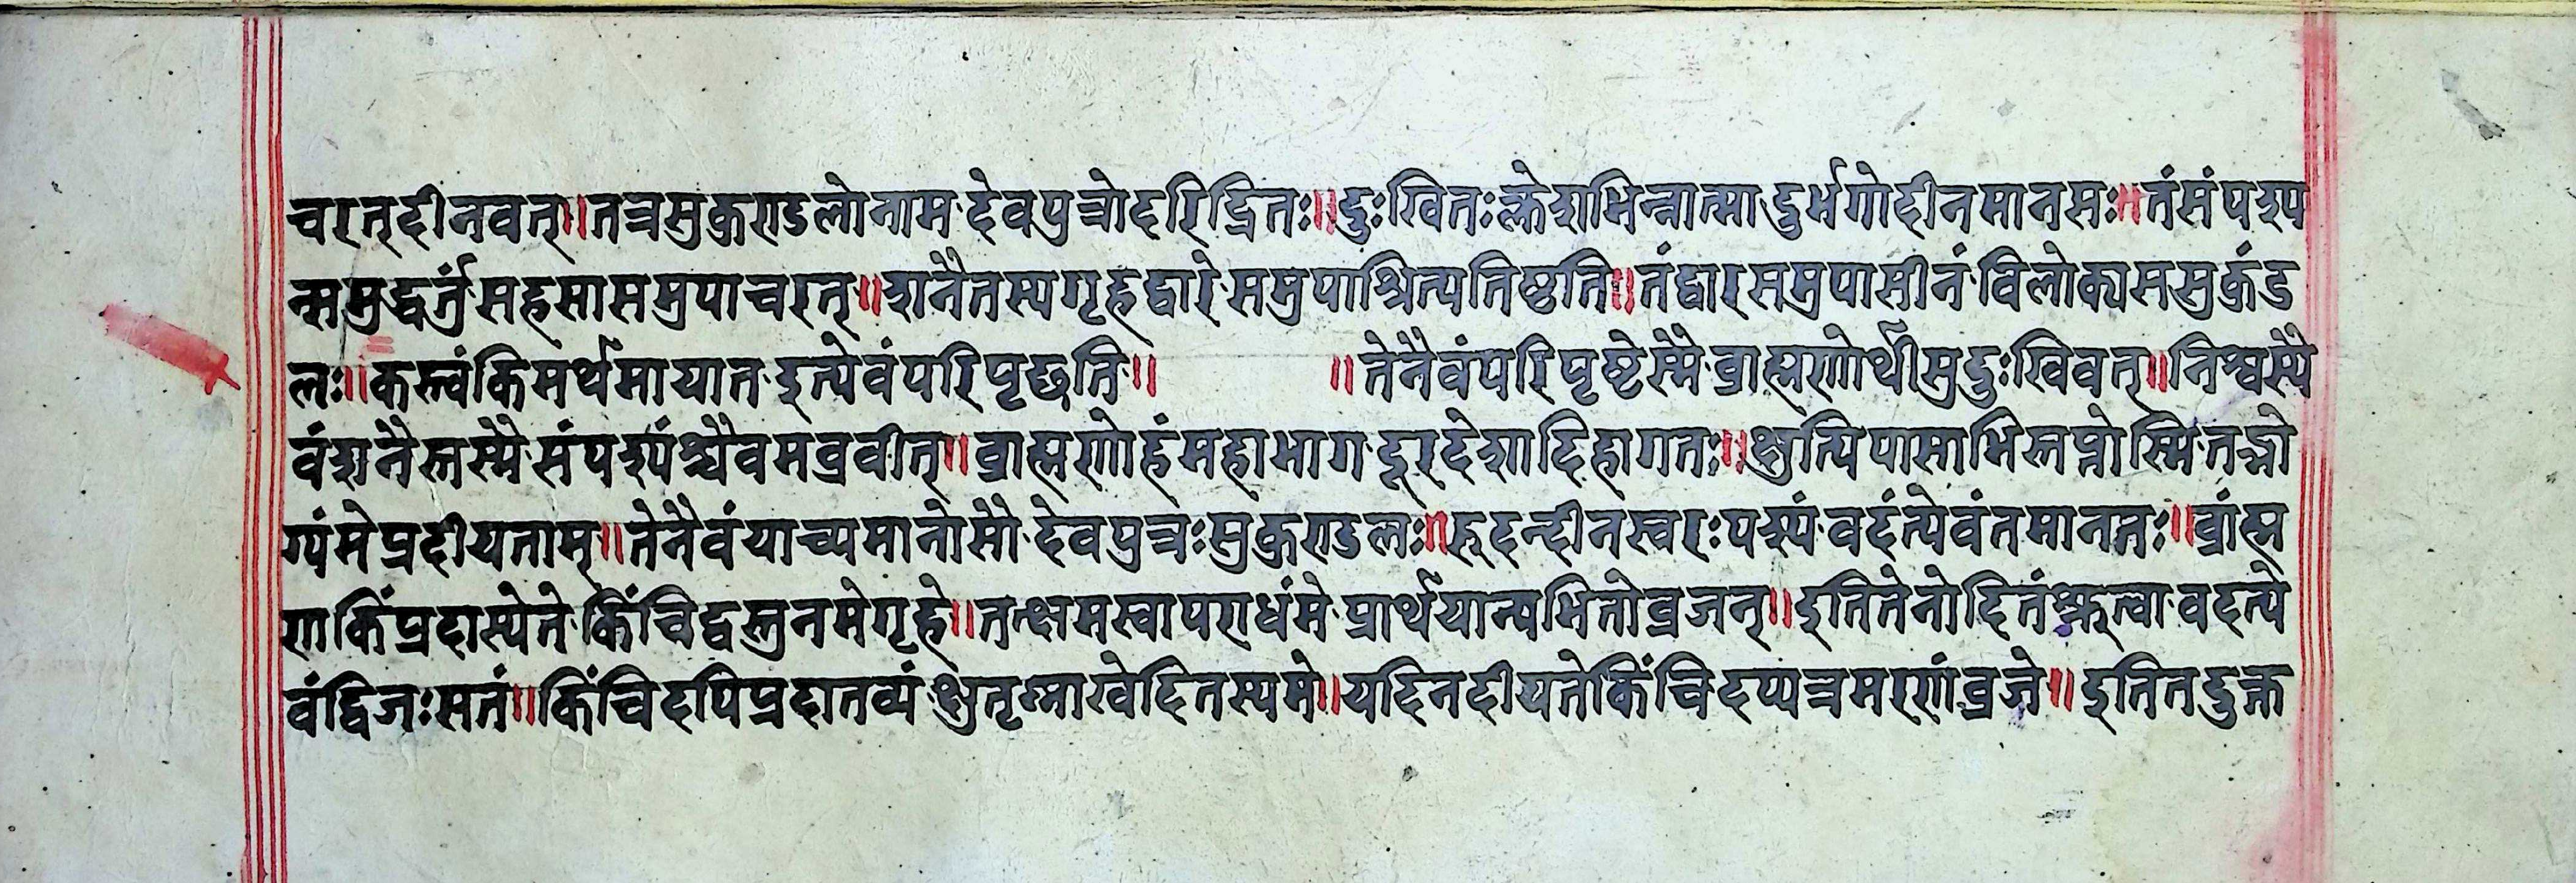 चरत्दीनवत्॥तत्रसुकुण्डलोनाम देवपुत्रोदरिद्रितः॥दुःखितःक्लेशभिन्नात्मा दुर्भगोदीनमानसः॥तंसंपश्य
न्समुद्धर्तुं सहसासमुपाचरत्॥शनैतस्यगृहद्वारे समुपाश्रित्यतिष्ठति॥तंद्वारसमुपासीनं विलोक्यससुकुंड
लः॥कस्त्वंकिमर्थमायात इत्येवंपरिपृच्छति॥ ॥तेनैवंपरिपृष्टेस्मै ब्राह्मणोर्थीसुदुःखिवत्॥निश्वस्यै
वंशनैस्तस्मै संपश्यंश्चैवमब्रवीत्॥ब्राह्मणोहंमहाभाग दूरदेशादिहागतः॥क्षुत्पिपासाभिस्तप्तोस्मि तद्भो
ग्यंमेप्रदीयताम्॥तेनैवंयाच्यमानोसौ देवपुत्रःसुकुण्डलः॥रुदन्दीनस्वरःपश्यं वदंत्येवंतमानतः॥ब्रांह्म
णकिंप्रदास्येते किंचिद्वस्तुनमेगृहे॥तत्क्षमस्वापराधंमे प्रार्थयान्यभितोव्रजन्॥इतितेनोदितंश्रुत्वा वदत्ये
वंद्विजःसतं॥किंचिदपिप्रदातव्यं क्षुतृष्णाखेदितस्यमे॥यदिनदीयतेकिंचिदप्यत्रमरणंव्रजे॥ इतितदुक्त